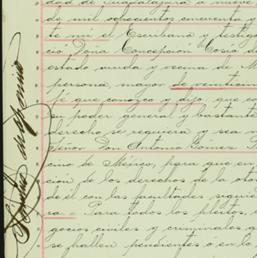 dad de Guadalajara a nueve
de mil ochocientos cincuenta y
te mi el Escribano y testigo
cio Doña Concepcion Cosio d
estado viuda y vecina de M
persona, mayor de veintiun
fé que conozco y dijo que co
su poder general y bastante
derecho se requiera y sea n
Señor Don Antonio Gomez
cino de México, para que en
cion de los derechos de la otor
de él con las facultades siguie
ra = Para todos los pleitos,
gocios civiles y criminales q
se hallen pendientes o en lo